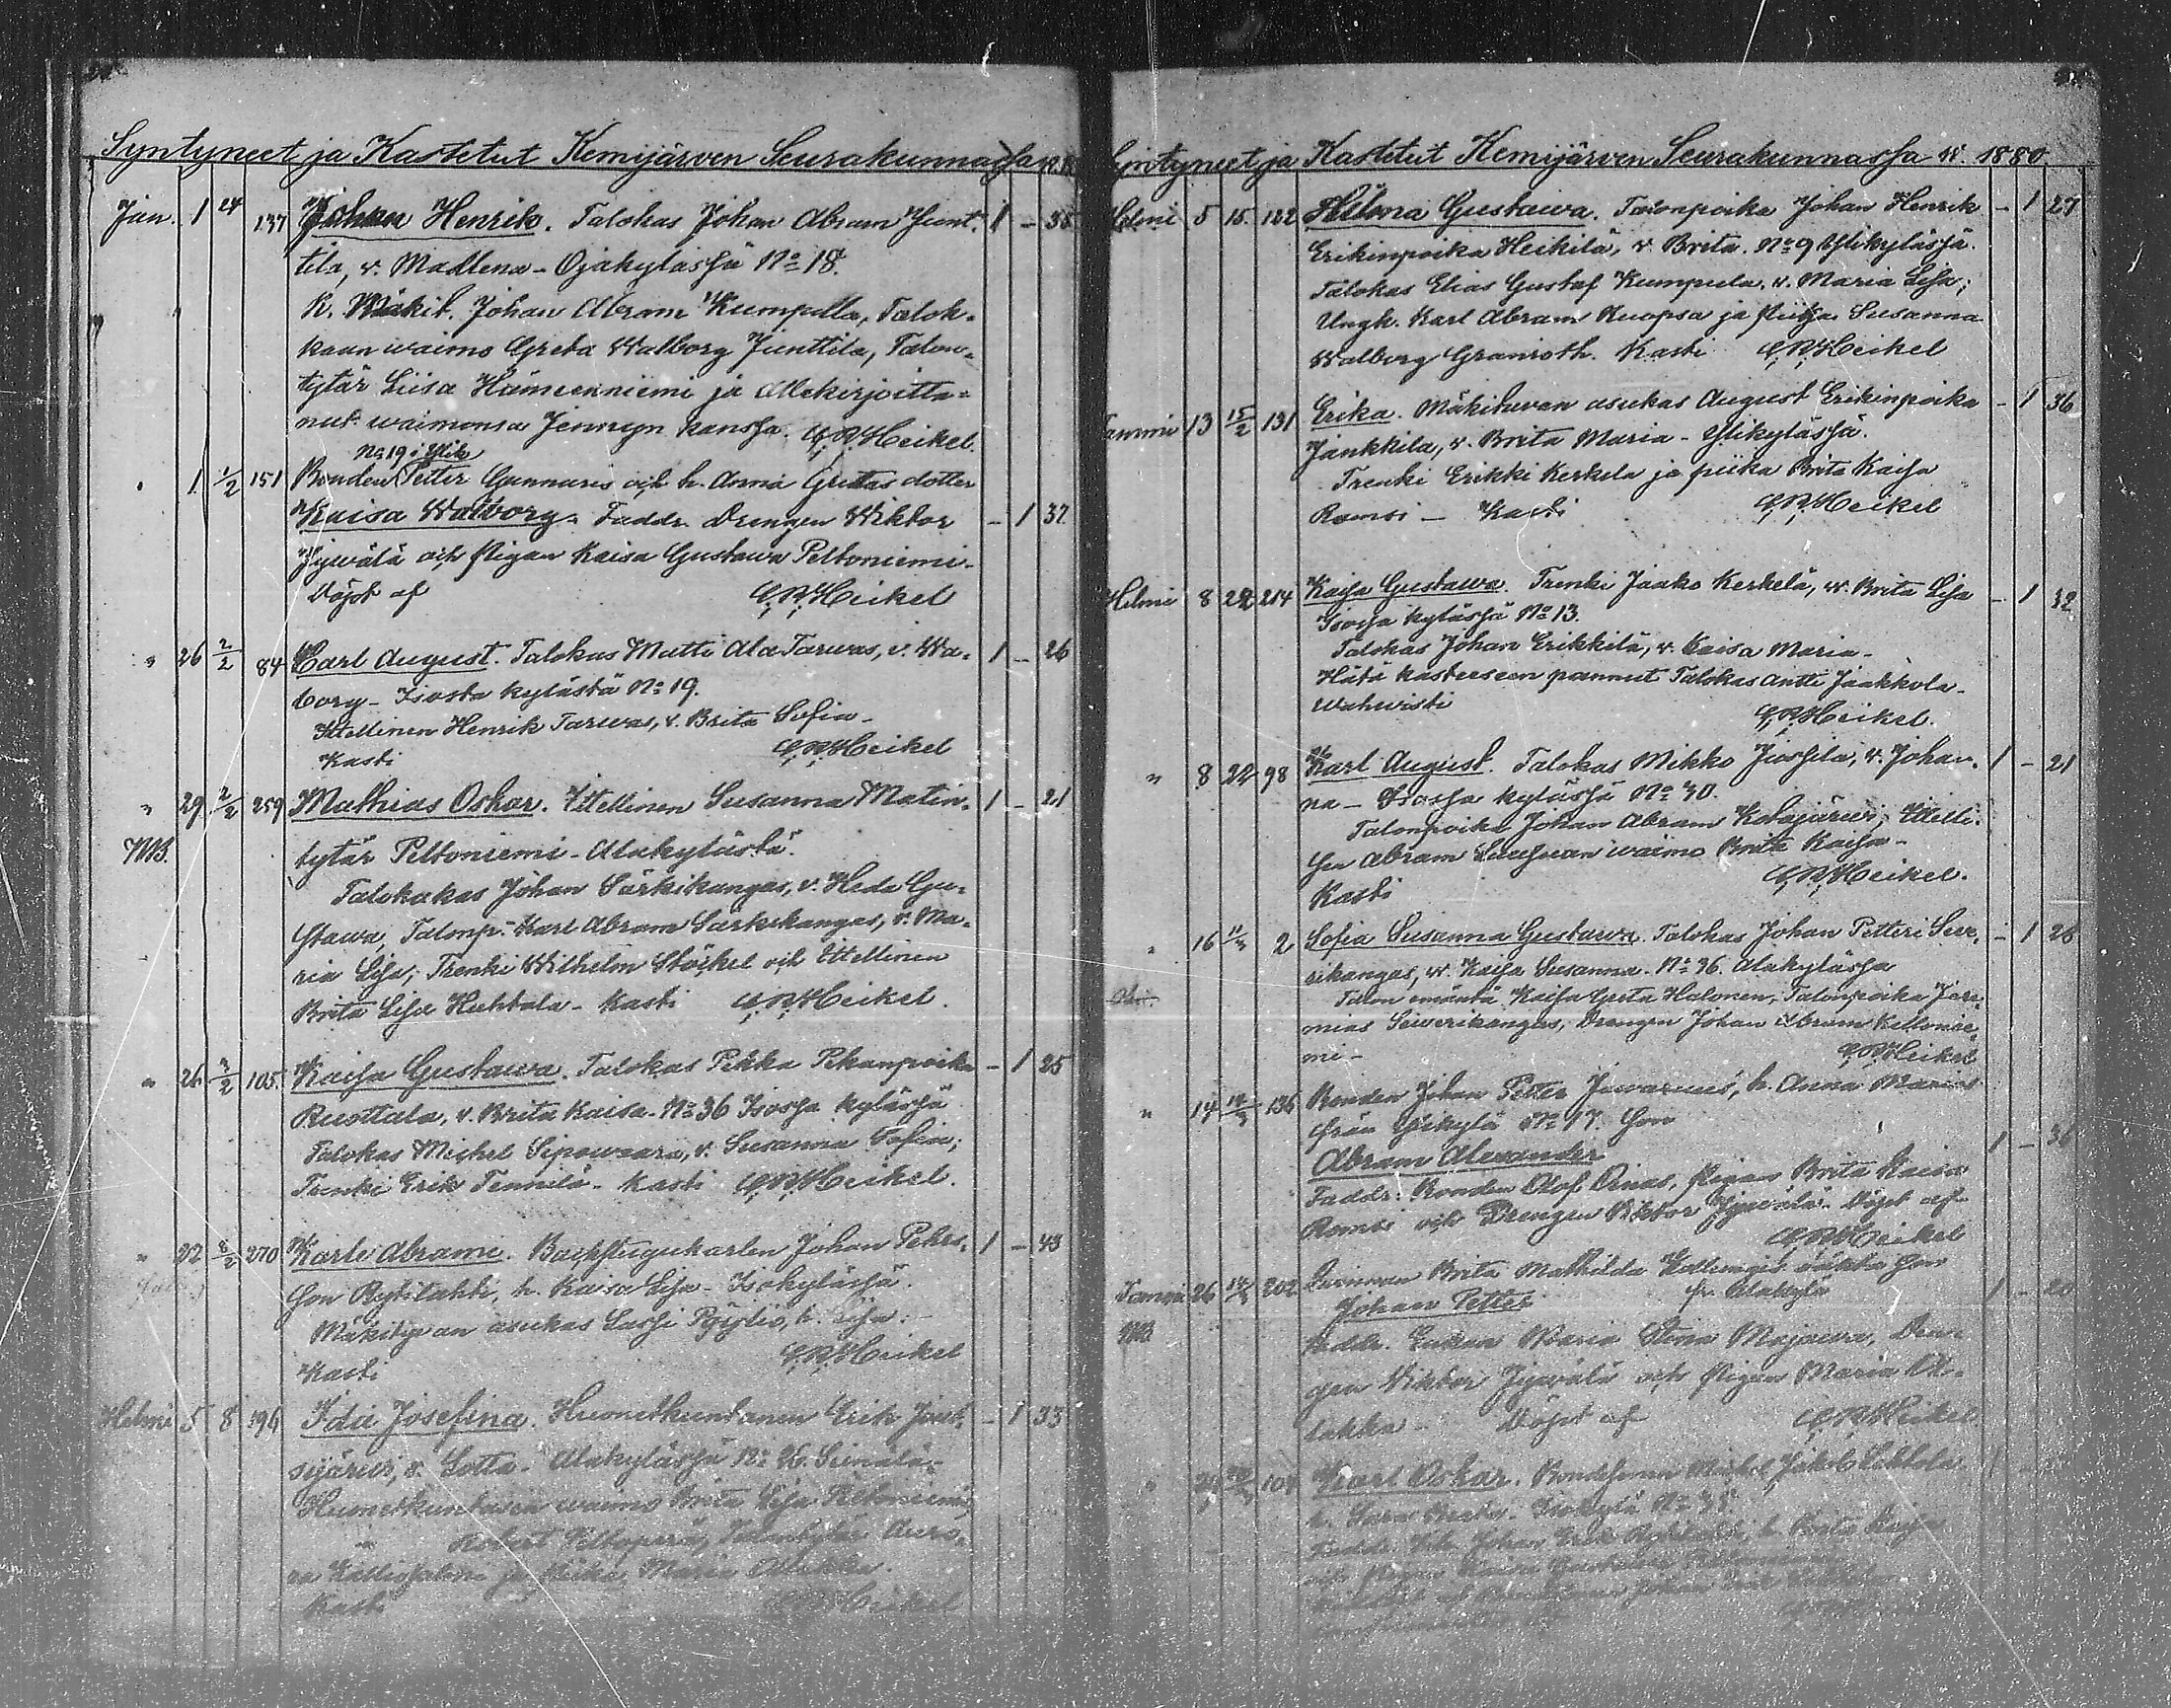 Syntyneet ja Kastetut Kemijärven Seurakunnassa
Jan. 1 24 137 Johan Henrik. Talokas Johan Abram Junt- 1 – 38
tila, v. Madlena – Ojakylässä No 18.
K. Mäkit. Johan Abram Kumpulla, Talok-
kaan waimo Greta Walborg Junttila, Talon-
tytär Liisa Hämeenniemi ja Allekirjoitta-
nut waimonsa Jennyn kanssa. C,R,Heikel.
No 19 i Ylik
" 1 1/2 151 Bonden Petter Gunnares och h. Anna Gretas dotter
Kaisa Walborg. Faddr. Drengen Wiktor – 1 37
Jywälä och Pigan Kaisa Gustawa Peltoniemi.
Döpt af C,R,Heikel
" 26 2/2 84 Carl August. Talokas Matti Ala Tarwas, v. Wa- 1 – 26
borg – Isosta kylästä No 19.
Ittellinen Henrik Tarwas, v. Brita Sofia –
Kasti C,R,Heikel
" 29 2/2 259 Mathias Oskar. Ittellinen Susanna Matin- 1 – 21
tytär Peltoniemi – Alakylästä.
Talokakas Johan Särkikangas, v. Heda Gu-
stawa, Talonp. Karl Abram Särkikangas, v. Ma-
ria Lisa, Trenki Wilhelm Stöckel och Ittellinen
Brita Lisa Huhtala – Kasti C,R,Heikel.
" 26 3/2 105 Kaisa Gustawa. Talokas Pekka Pekanpoika – 1 25
Ruottala, v. Brita Kaisa. No 36 Isossa kylässä
Talokas Michel Sipowaara, v. Susanna Sofia;
Trenki Erik Tennilä – Kasti C,R,Heikel.
" 22 8/2 270 Karle Abrame. Backstugukarlen Johan Pehrs- 1 – 43
son Rytilahti, h. Kaisa Lisa – Isokylässä.
Mäkituwan asukas Lassi Pöyliö, h. Lisa. –
Kasti C,R,Heikel
Helmi 5 8 196 Ida Josefina. Huonetkuntanen Erik Jout- – 1 33
sijärwi, v. Lotta – Alakylässä
Huonetkuntasen waimo Brita Lisa Peltoniemi,
Robert Peltoperä, Talontytär Auro-
ra Kalliosalmi ja Piika Maria Ollakka.
Kasti C,R,Heikel
Syntyneet ja Kastetut Kemijärven Seurakunnassa w. 1880.
Helmi 5 15. 122 Hilma Gustawa. Talonpoika Johan Henrik – 1 27
Erikinpoika Heikilä, v. Brita. No 9 Ylikylässä.
Talokas Elias Gustaf Kumpula, v. Maria Lisa;
Ungk. Karl Abram Kuopsa ja Piika Susanna
Walborg Granroth. Kasti C,R,Heikel
Tammi 13 15/2 131 Erika. Mäkituwan asukas August Erikinpoika – 1 36
Jankkila, v. Brita Maria – Ylikylässä.
Trenki Erikki Kerkela ja piika Brita Kaisa
Ramsi – Kasti C,R,Heikel
Helmi 8 22 214 Kaisa Gustawa. Trenki Jaako Kerkelä, w. Brita Lisa – 1 32
Isossa kylässä No 13.
Talokas Johan Erikkilä, v. Kaisa Maria –
Hätä kasteeseen pannut Talokas Antti Jaakkola –
Wahwisti C,R,Heikel.
" 8 22 98 Karl August. Talokas Mikko Jussila, v. Johan- 1 – 21
na – Isossa kylässä No 40.
Talonpoika Johan Abram Kotajärwi, Ittelli-
sen Abram waimo Brita Kaisa –
Kasti C,R,Heikel.
" 16 11/3 2 Sofia Susanna Gustawa. Talokas Johan Petteri Sewe- – 1 26
rikangas, w. Kaisa Susanna. No 36. Alakylässä
Talon emäntä Kaisa Greta Halonen, Talonpoika Jere-
mias Sewerikangas, Drengen Johan Abram Keltonie-
mi – C,R,Heikel
" 14 14/3 136 Bonden Johan Petter Juwarus, h. Anna Marias
från Ylikylä No 17. Son
Abram Alexander 1 – 36
Faddr: Bonden Olof Oinas, Pigan Brita Kaisa
Ramsi och Drengen Viktor Jywälä. Döpt af
C,R,Heikel
Tammi 26 14/3 202 Qvinnan Brita Mathilda oäkta son
Johan Petter fr. Alakylä 1 – 20
Faddr. Enkan Maria Stina Majawa, Dren-
gen Viktor Jywälä och Pigan Maria Ol-
lakka – Döpt af C,R,Heikel
" 104 Karl Oskar. Bondesonen Michel Jakob Lehtola 1
Isokylä No 35
Faddr. Johan Erik h. Brita Kaisa